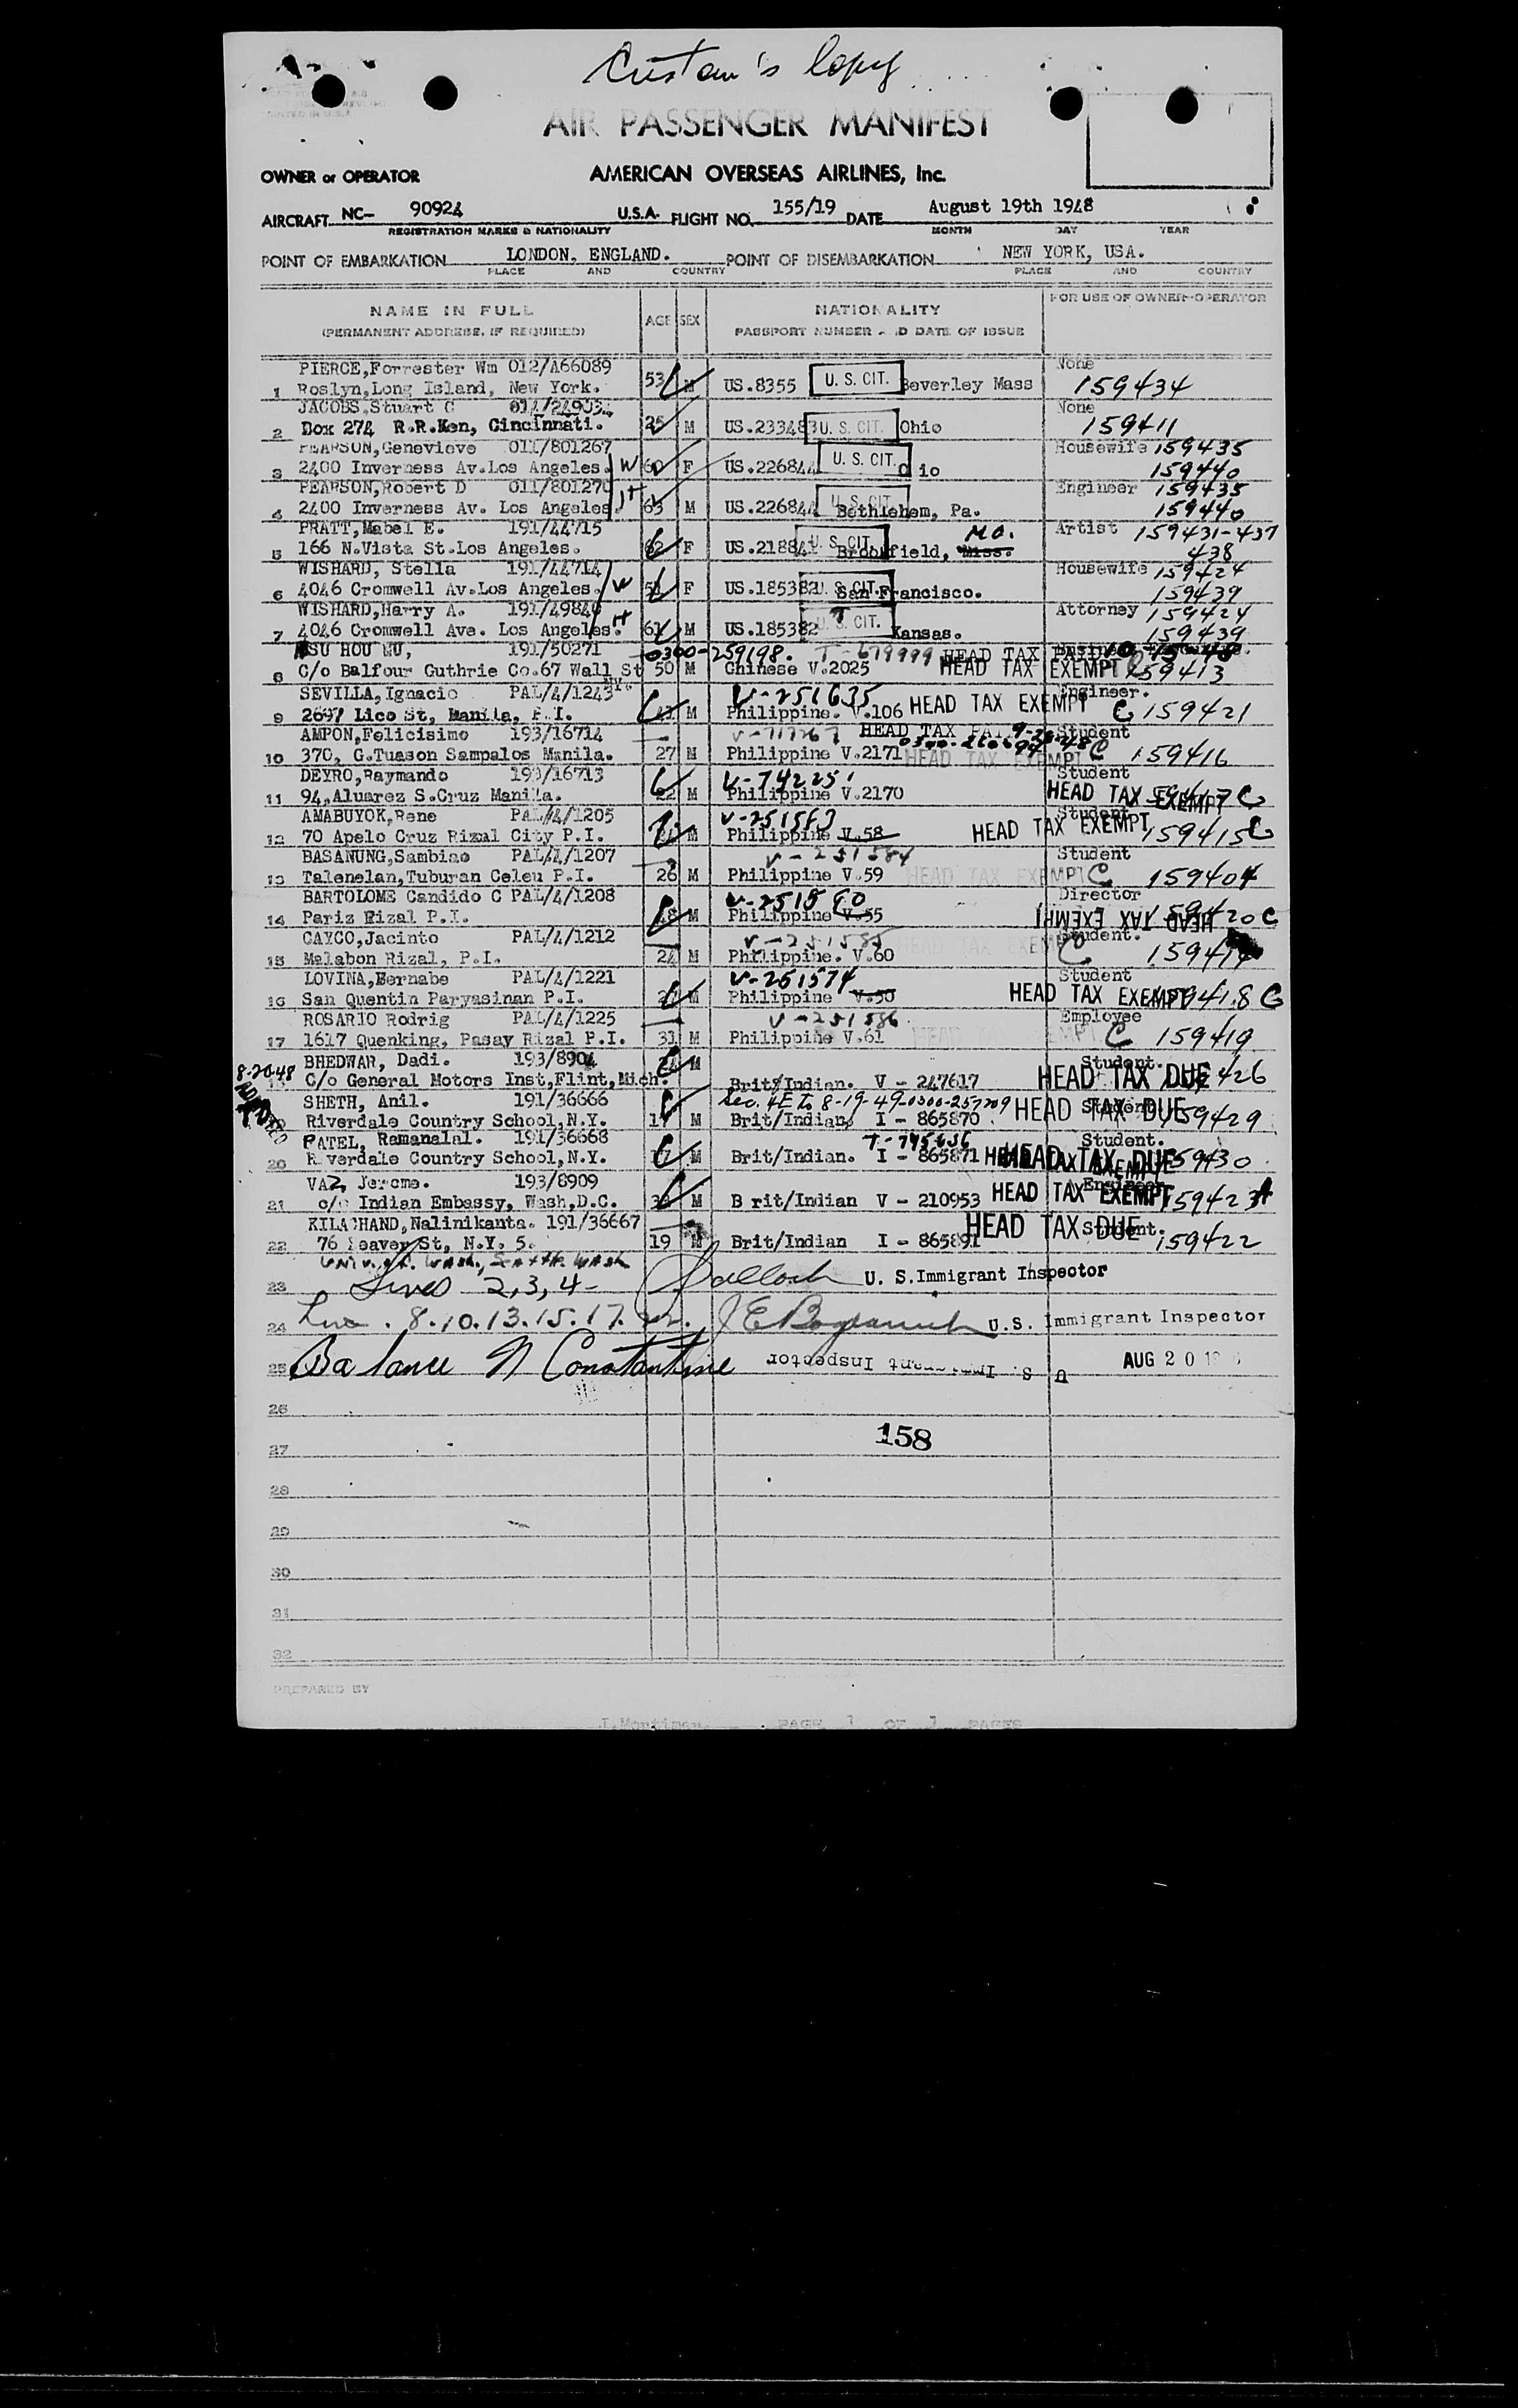 Custom's Copy
AIR PASSENGER MANIFEST
OWNER or OPERATOR AMERICAN OVERSEAS AIRLINES, Inc.
AIRCRAFT NC- 90924 U.S.A. FLIGHT NO. 155/19 DATE August 19th 1948
REGISTRATION MARKS & NATIONALITY MONTH DAY YEAR
POINT OF EMBARKATION LONDON, ENGLAND. POINT OF DISEMBARKATION NEW YORK, USA.
PLACE AND COUNTRY PLACE AND COUNTRY
NAME IN FULL AGE SEX NATIONALITY FOR USE OF OWNER-OPERATOR
(PERMANENT ADDRESS, IF REQUIRED) PASSPORT NUMBER AND DATE OF ISSUE
PIERCE, Forrester Wm 012/A66089 None
1 Roslyn, Long Island, New York. 53 M US.8355 U. S. CIT. Beverley Mass 159434
JACOBS, Stuart C None
2 Box 274 R.R.Ken, Cincinnati. 25 M US.233483 U. S. CIT. Ohio 159411
PEARSON, Genevieve 011/801267 Housewife 159435
3 2400 Inverness Av. Los Angeles. W 60 F US.226844 U. S. CIT. 159440
PEARSON, Robert D 011/801270 Engineer 159435
4 2400 Inverness Av. Los Angeles. H 63 M US.226844 U. S. CIT. Bethlehem, Pa. 159440
PRATT, Mabel E. 191/44715 Mo. Artist 159431-437
5 166 N.Vista St. Los Angeles. 62 F US.21884 U. S. CIT. Brookfield, Miss. 438
WISHARD, Stella 191/44714 Housewife 159424
6 4046 Cromwell Av. Los Angeles. W F US.185382 U. S. CIT. San Francisco. 159439
WISHARD, Harry A. 191/49840 Attorney 159424
7 4046 Cromwell Ave. Los Angeles. H 61 M US.185382 U. S. CIT. Kansas. 159439
HSU HOU 191/50271 0300-259198. T-679999 HEAD TAX PAID
8 C/o Balfour Guthrie Co. 67 Wall St 50 M Chinese V.2025 HEAD TAX EXEMPT 159413
SEVILLA, Ignacio PAL/4/1243 V-251635 HEAD TAX EXEMPT Engineer.
9 2697 Lico St, Manila, P.I. M Philippine. V.106 C 159421
AMPON, Felicisimo 193/16714 HEAD TAX PAID Student
10 370, G.Tuason Sampalos Manila. 27 M Philippine V.2171 HEAD TAX EXEMPT C 159416
DEYRO, Raymando 193/16713 V-742251 Student
11 94, Aluarez S.Cruz Manila. 22 M Philippine V.2170 HEAD TAX EXEMPT C
AMABUYOK, Rene PAL/4/1205 V-251583 Student
12 70 Apelo Cruz Rizal City P.I. M Philippine V.58 HEAD TAX EXEMPT 159415 C
BASANUNG, Sambiao PAL/4/1207 V-251584 Student
13 Talenelan, Tuburan Celeu P.I. 26 M Philippine V.59 HEAD TAX EXEMPT C 159404
BARTOLOME Candido C PAL/4/1208 V-251580 Director
14 Pariz Rizal P.I. M Philippine V.55 HEAD TAX EXEMPT 159420 C
CAYCO, Jacinto PAL/4/1212 V-251585 Student.
15 Malabon Rizal, P.I. 24 M Philippine. V.60 HEAD TAX EXEMPT C
LOVINA, Bernabe PAL/4/1221 V-251574 Student
16 San Quentin Paryasinan P.I. M Philippine V.50 HEAD TAX EXEMPT 159418 C
ROSARIO Rodrig PAL/4/1225 V-251586 Employee
17 1617 Quenking, Pasay Rizal P.I. 31 M Philippine V.61 HEAD TAX EXEMPT C 159419
BHEDWAR, Dadi. 193/8904 M Student.
8-20-48 C/o General Motors Inst, Flint, Mich. Brit/Indian. V - 247617 HEAD TAX DUE 426
SHETH, Anil. 191/36666 Sec. 4E to 8-19-49-0300-257209 Student
Riverdale Country School, N.Y. M Brit/Indian, I - 865870 HEAD TAX DUE 159429
PATEL, Ramanalal. 191/36668 T-745636 Student.
20 Riverdale Country School, N.Y. 17 M Brit/Indian. I - 865871 HEAD TAX DUE 159430
VAZ, Jerome. 193/8909 Engineer
21 c/o Indian Embassy, Wash, D.C. M Brit/Indian V - 210953 HEAD TAX EXEMPT 159423 A
KILACHAND, Nalinikanta. 191/36667 HEAD TAX DUE Student.
22 76 Beaver St, N.Y. 5. 19 M Brit/Indian I - 865891 159422
Univ. of. Wash., Seattle Wash
23 Lines 2, 3, 4- U. S. Immigrant Inspector
24 Line. 8.10.13.15.17. 22. U.S. Immigrant Inspector
25 Balance N Constantine U S. Immigrant Inspector AUG 20
26
158
27
28
29
30
31
32
PREPARED BY
PAGE 1 OF 1 PAGES